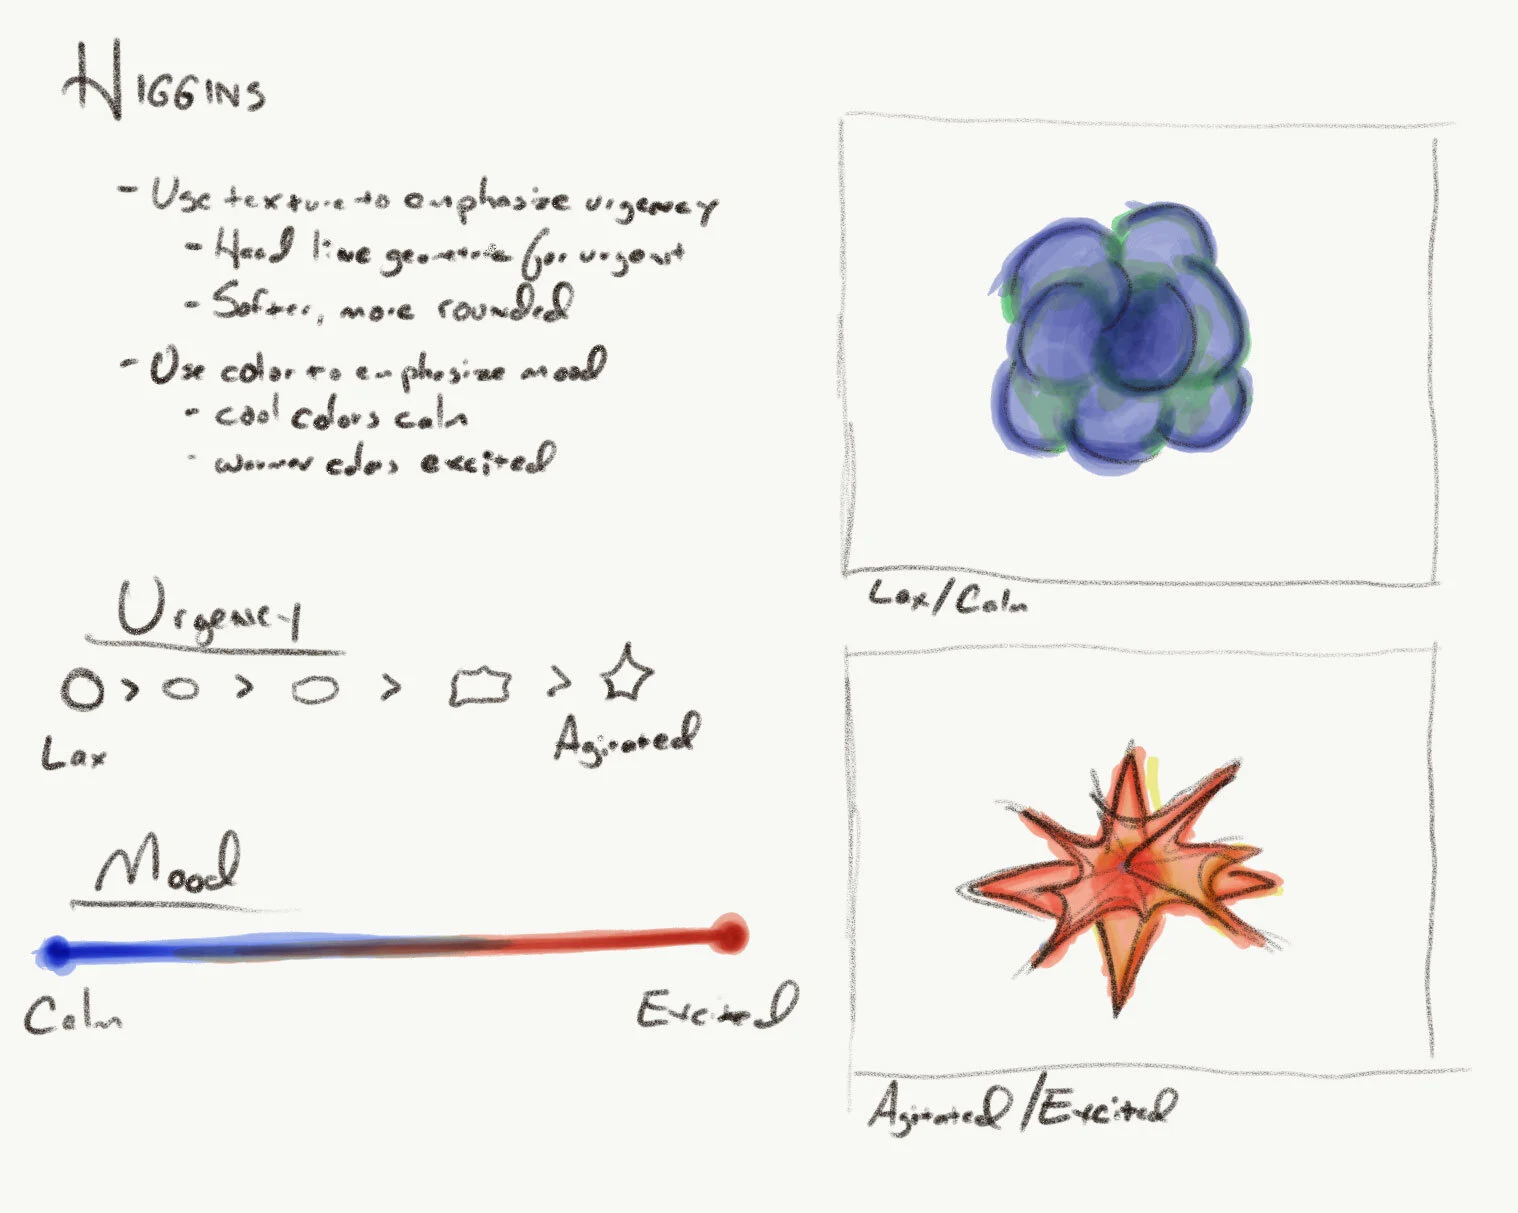 HIGGINS
- Use texture to emphasize urgency
- Hard line geometric for urgent
- Softer, more rounded
- Use color to emphasize mood
- cool colors calm
- warmer colors excited
Urgency
> > > >
Lax
Agitated
Mood
Calm
Excited
Lax/Calm
Agitated/Excited